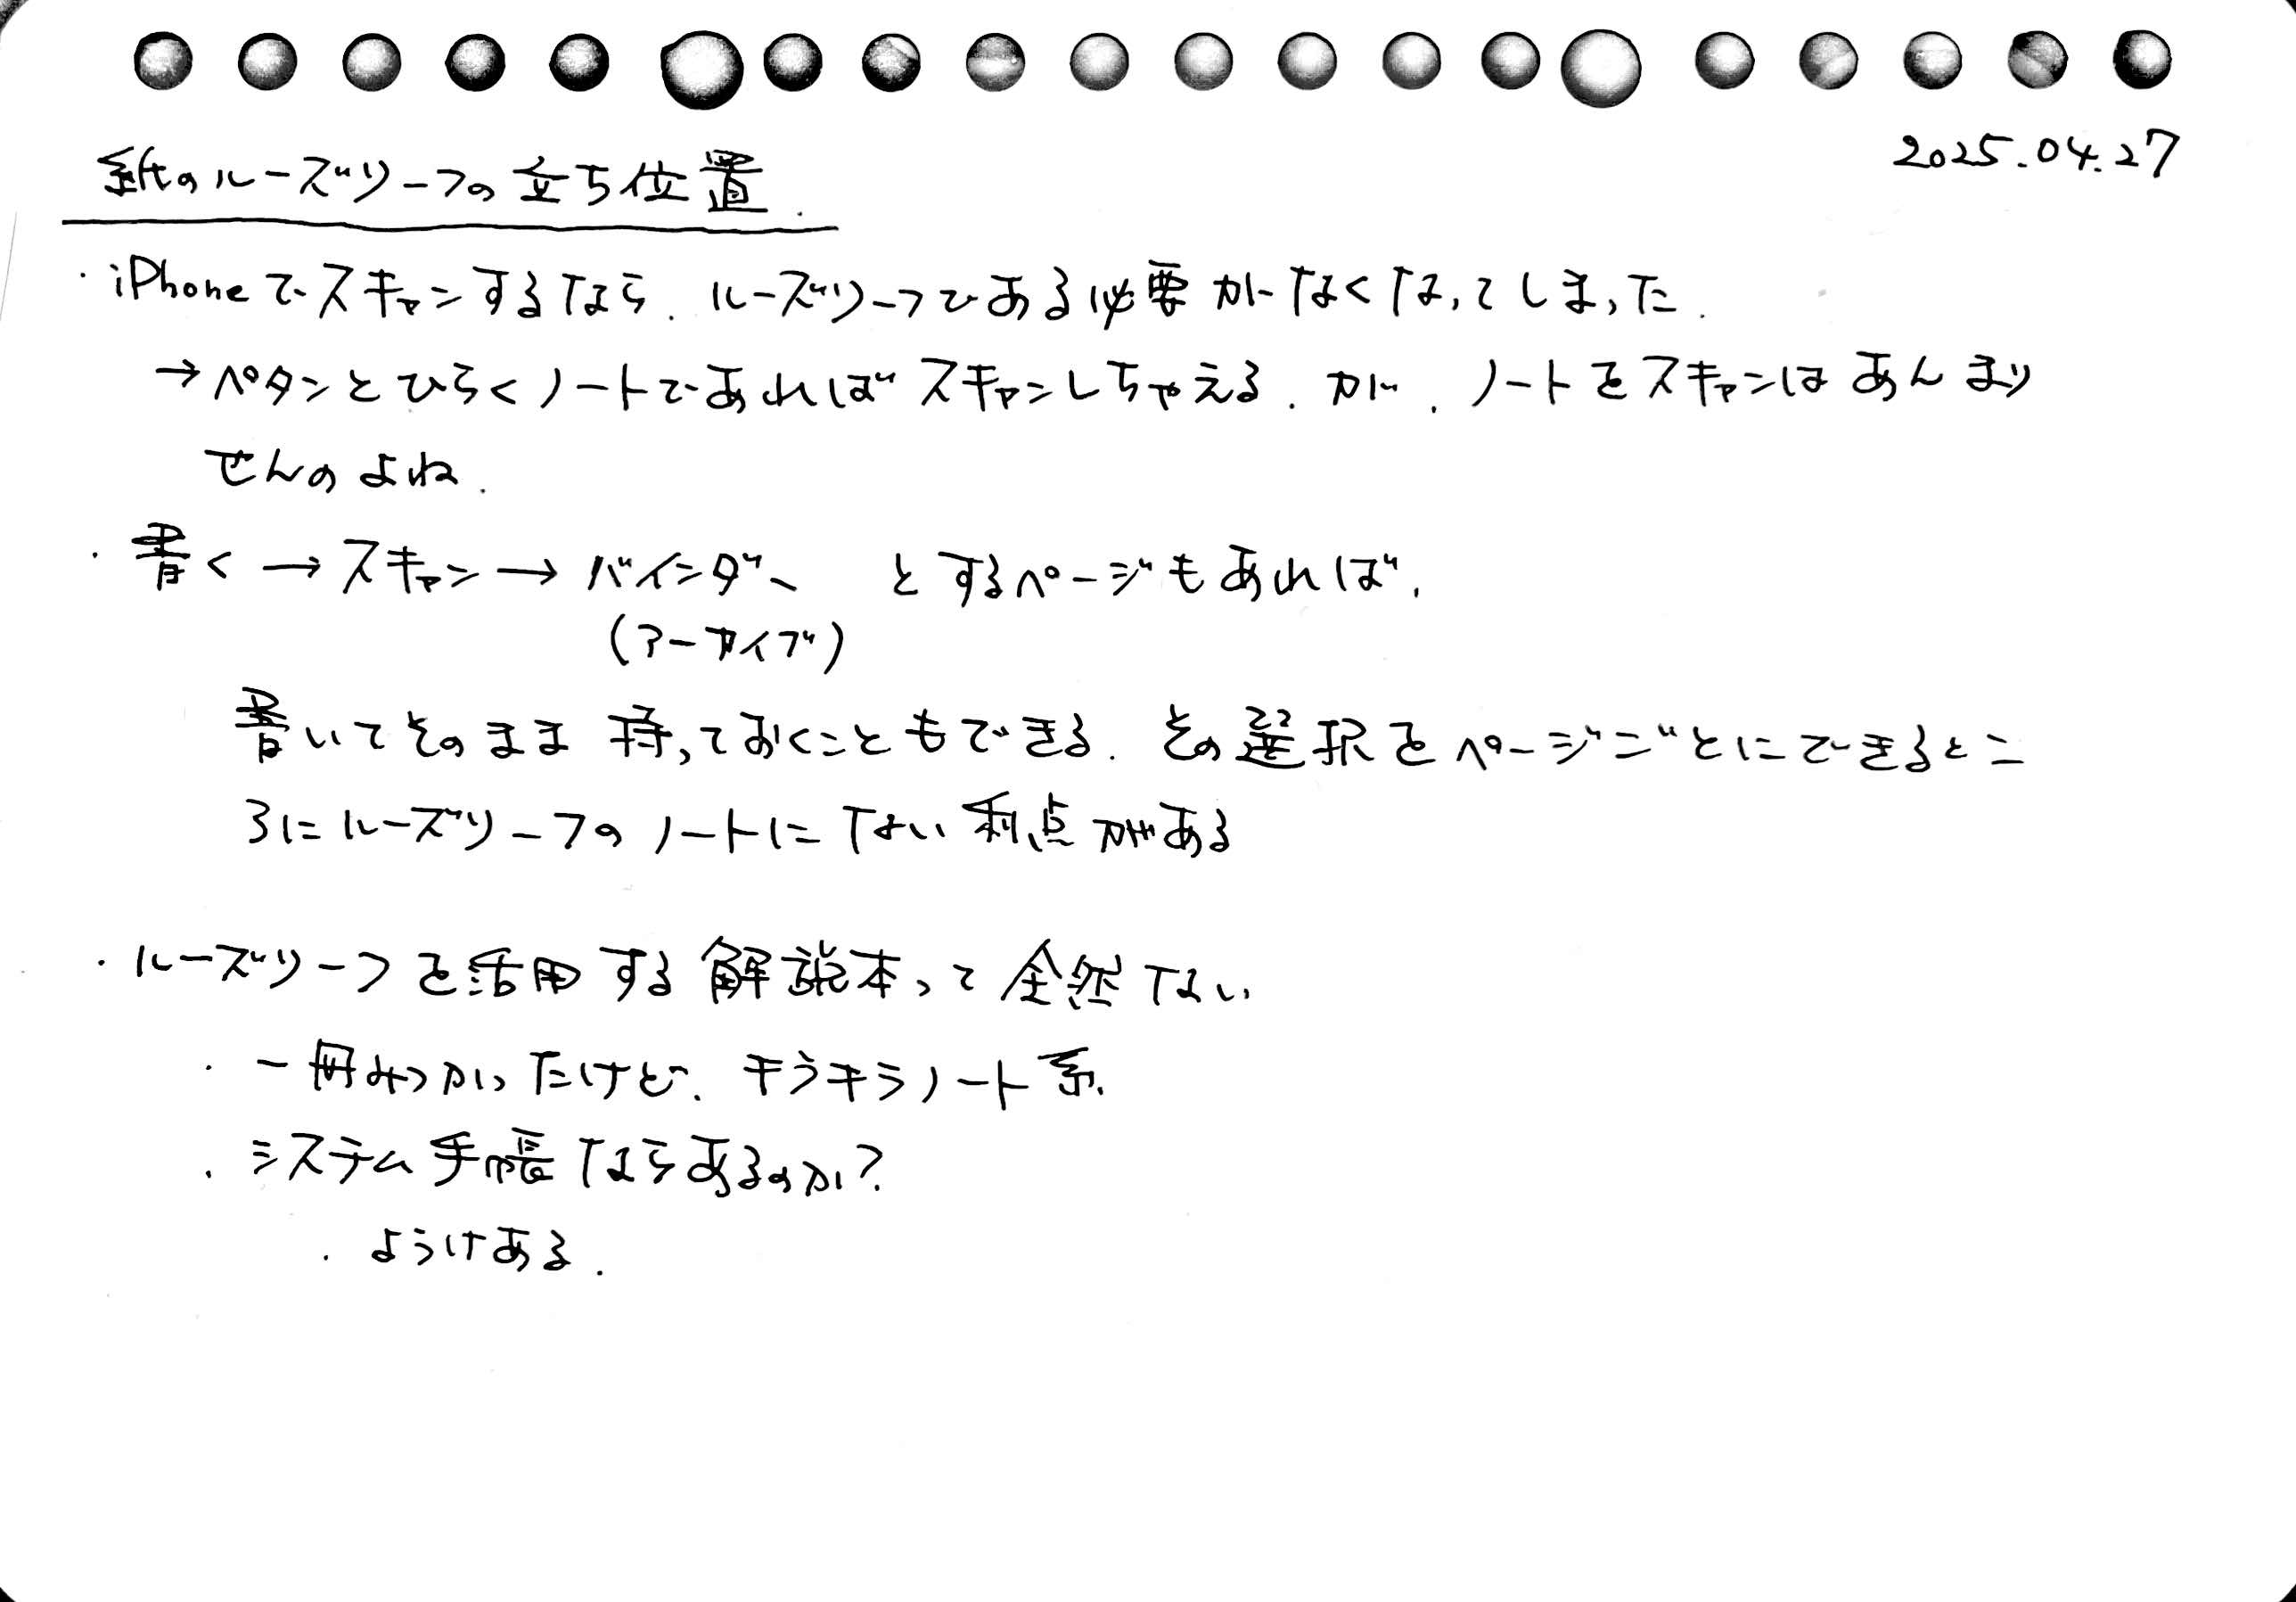 2025.04.27
紙のルーズリーフの立ち位置.
・iPhoneでスキャンするなら. ルーズリーフである必要がなくなってしまった.
→ペタンとひらくノートであればスキャンしちゃえる. が. ノートをスキャンはあんまり
せんのよね.
・書く→スキャン→バインダへ とするページもあれば.
(アーカイブ)
書いてそのまま持っておくこともできる. その選択をページごとにできるとこ
ろにルーズリーフのノートにない利点がある
・ルーズリーフを活用する解説本って全然ない
・一冊みつかったけど. キラキラノート系.
・システム手帳ならあるのか?
・ようけある.